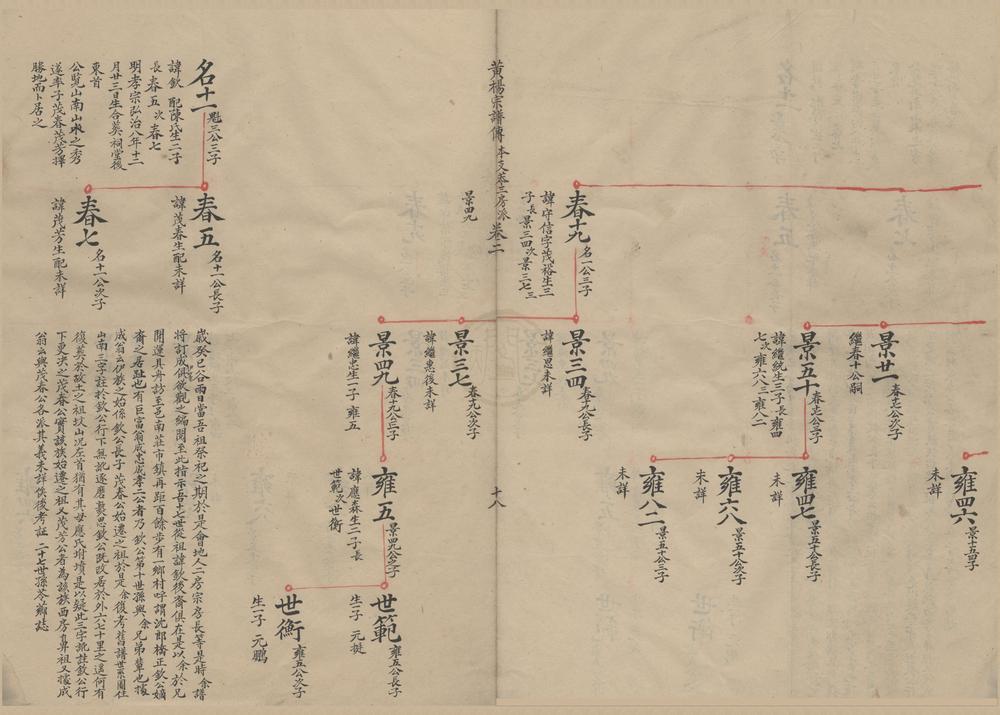 雍四六
景十五四子
未詳
景廿一
春十七公次子
繼春十公嗣
景五十
春十七公三子
諱繼統生三子長雍四
七次雍六八三雍八二
雍四七
景五十公長子
未詳
雍六八
景五十公次子
未詳
雍八二
景五十公三子
未詳
春十九
名一公三子
諱守信字茂裕生三
子長景三四次景三七三
景四九
景三四
春十九公長子
諱繼思未詳
景三七
春十九公次子
諱繼惠後未詳
景四九
春十九公三子
諱繼忠生一子 雍五
雍五
景四九公之子
諱應森生二子長
世範次世衡
世範
雍五公長子
生一子 元挺
世衡
雍五公次子
生一子 元鵬
黃楊宗譜傳 本支恭三房派卷二
十八
名十一
三公三子
諱欽 配陳氏生二子
長 春五 次 春七
明孝宗弘治八年十二
月廿三日生合葬祠堂後
東首
公覽山南山水之秀
遂率子茂春茂芳擇
勝地而卜居之
春五
名十一公長子
諱茂春生配未詳
春七
名十一公次子
諱茂芳生配未詳
歲癸巳谷雨日當吾祖祭祀之期於是會地人二房宗房長等是時余譜
將訂成俱欲觀之編閱至此指示吾十七世從祖諱欽後裔俱在是以余於兄
開運具舟抄至邑南莊市鎮再距百餘步有一鄉村呼謂沈郎橋正欽公嫡
裔之居址也有巨富翁咸忠咸孝二公者乃欽公第十世孫與余兄弟輩也據
成翁云伊族之始係欽公長子茂春公始遷之祖於是余復考舊譜世系圖住
山南三字註於欽公行下無訛逐磨裏思欽公既改居於外六七十里之遙何有
復葬於故土之祖坟山況左首猶有其母應氏坿墳是以疑此三字訛註欽公行
下更决之茂春公實該族始遷之祖又茂芳公者為該族西房鼻祖又據成
翁云與茂春公各派其義未詳俟後考証 二十七世孫芩薌誌